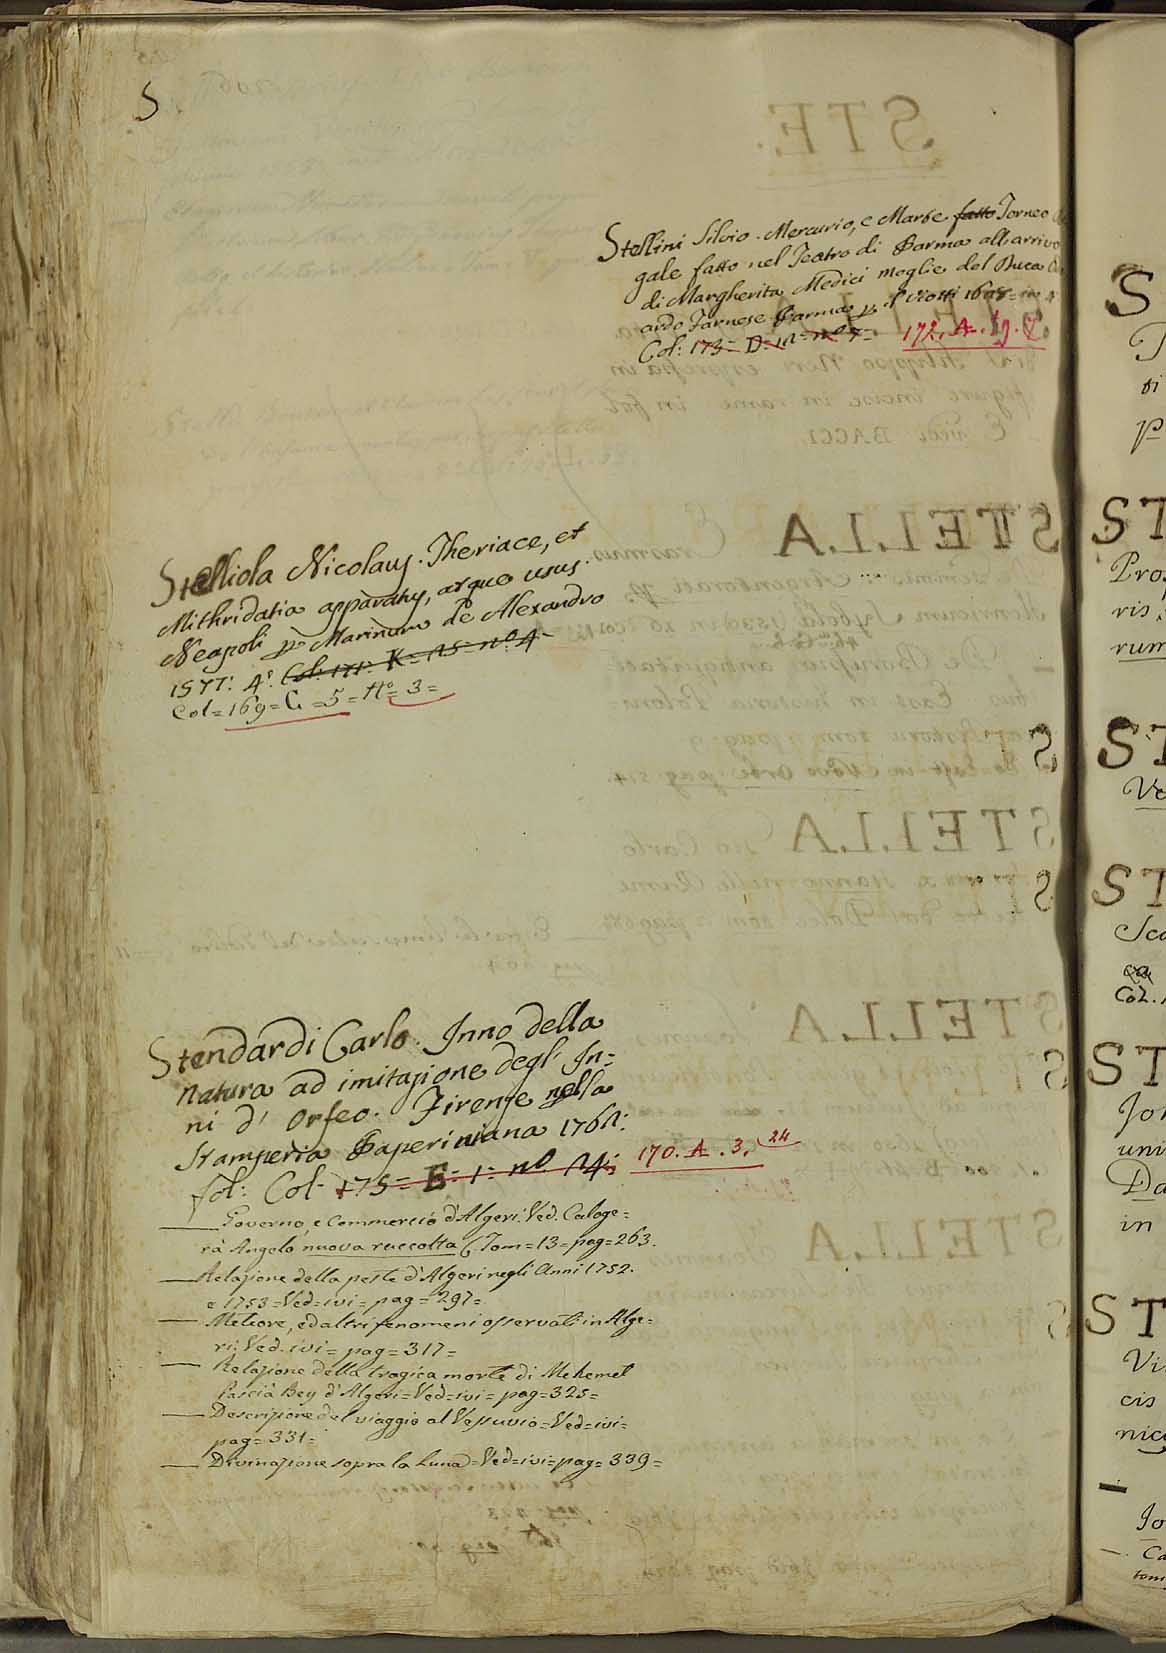 S
Stellini Silvio. Mercurio, e Marte fatto Torneo
gale fatto nel Teatro di Parma all'arrivo
di Margherita Medici moglie del Duca
ardo Farnese Parma p. il Viotti 16 in 4
Col: 173= D=12= no 7= 172. A. 19. 7
Stelliola Nicolaus. Theriace, et
Mithridatia apparatus, atque usus.
Neapoli p. Marinum de Alexandro
1577. 4°. Col: 171. K= 25= no 4=
Col=169= G =5= No= 3=
Stendardi Carlo. Inno della
natura ad imitazione degl' In=
ni d' Orfeo. Firenze nella
Stamperia Paperiniana 1762:
fol: Col: 175= E= 1= no 24; 170. A. 3. 24
— Governo, e Commercio d'Algeri. Ved. Caloge=
rà Angelo nuova raccolta (Tom=13=pag=263.
— Relazione della peste d'Algeri negli Anni 1752.
e 1753=Ved=ivi=pag=297=
— Meteore, ed altri fenomeni osservati in Alge=
ri: Ved. ivi= pag=317=
— Relazione della tragica morte di Mehemet
Pascià Bey d'Algeri=Ved=ivi= pag=325=
— Descrizione del viaggio al Vesuvio=Ved=ivi=
pag=331=
— Divinazione sopra la Luna=Ved=ivi=pag=339=
S
ST
Pros
ris
rum
ST
Ve
ST
Sco
Col.
ST
Jo
uni
Da
in
ST
Vi
cis
nic
Jo
Ca
tom